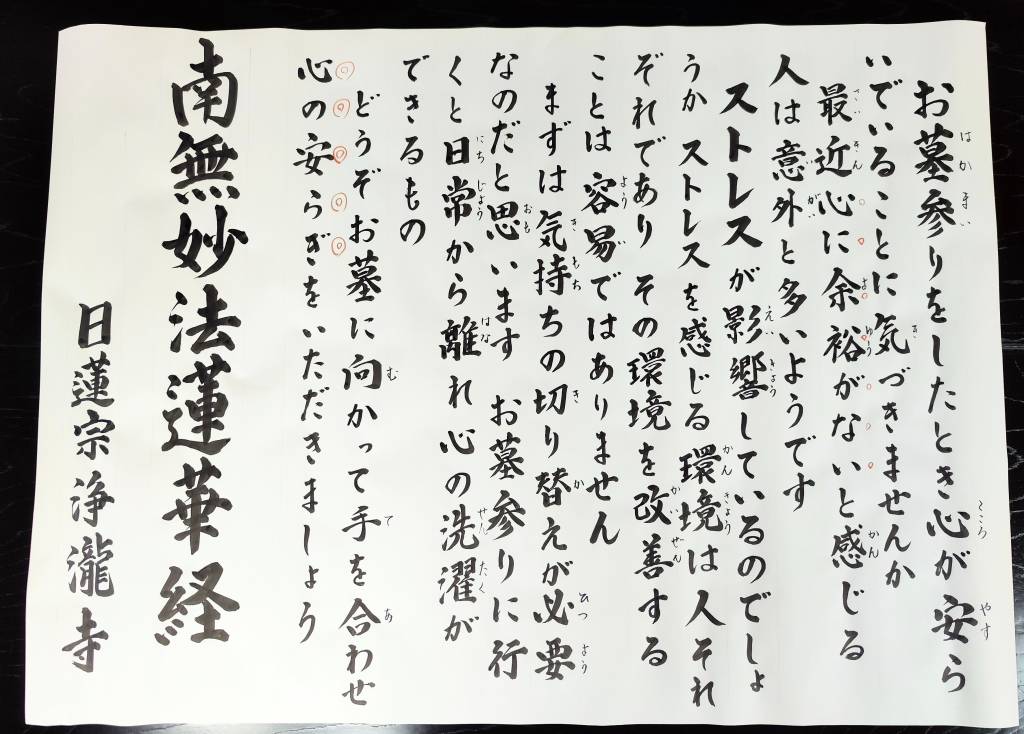 お墓参りをしたとき心が安ら
いでいることに気づきませんか
最近心に余裕がないと感じる
人は意外と多いようです
ストレスが影響しているのでしょ
うか ストレスを感じる環境は人それ
ぞれであり その環境を改善する
ことは容易ではありません
まずは気持ちの切り替えが必要
なのだと思います お墓参りに行
くと日常から離れ心の洗濯が
できるもの
どうぞお墓に向かって手を合わせ
心の安らぎをいただきましょう
南無妙法蓮華経
日蓮宗浄瀧寺